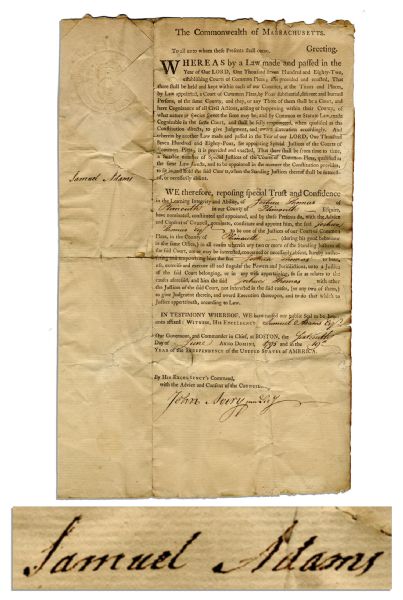 The Commonwealth of MASSACHUSETTS.
To all unto whom these Presents shall come, Greeting.
WHEREAS by a Law made and passed in the
Year of Our LORD, One Thousand Seven Hundred and Eighty-Two,
establishing Courts of Common Pleas, it is provided and enacted, That
there shall be held and kept within each of our Counties, at the Times and Places,
by Law appointed, a Court of Common Pleas, by Four substantial, discreet and learned
Persons, of the same County, and they, or any Three of them shall be a Court, and
have Cognizance of all Civil Actions, arising or happening within their County, of
what nature or Species the same may be, and by Common or Statute Law, made
Cognizable in the same Court, and shall be fully empowered, when qualified as the
Constitution directs, to give Judgment, and award Execution accordingly. And
whereas by another Law made and passed in the Year of our LORD, One Thousand
Seven Hundred and Eighty-Four, for appointing Special Justices of the Courts of
Common Pleas, it is provided and enacted, That there shall be from time to time,
a suitable number of Special Justices of the Court of Common Pleas, qualified as the
same Law stands, and to be appointed in the manner the Constitution provides,
to sit in and hold the said Court, when the Standing Justices thereof shall be interested,
or necessarily absent.
Samuel Adams
WE therefore, reposing special Trust and Confidence
in the Learning Integrity and Ability, of Joshua Thomas of
Plimouth in our County of Plimouth Esquire,
have nominated, constituted and appointed, and by these Presents do, with the Advice
and Consent of Council, nominate, constitute and appoint him, the said Joshua
Thomas Esqr to be one of the Justices of our Court of Common
Pleas, in the County of Plimouth (during his good behaviour
in the same Office,) in all causes wherein any two or more of the Standing Justices of
the said Court, are or may be interested, or
Joshua Thomas to have,
use, exercise and execute all and singular the Powers and Jurisdictions, unto a Justice
of the said Court belonging, or in any wise appertaining, so far as relates to the
causes aforesaid, and him the said Joshua Thomas with other
the Justices of the said Court, not interested in the said causes, (or any two of them)
to give Judgment therein, and award Execution thereupon, and to do that which to
Justice appertaineth, according to Law.
IN TESTIMONY WHEREOF, We have caused our public Seal to be hereunto
affixed: WITNESS, His EXCELLENCY Samuel Adams Esqr
Our Governor, and Commander in Chief, at BOSTON, the
Day of June ANNO DOMINI, 1795 and in the 19th
YEAR of the INDEPENDENCE of the UNITED STATES of AMERICA.
By HIS EXCELLENCY's Command,
with the Advice and Consent of the COUNCIL.
John Avery jun Secy
Samuel Adams